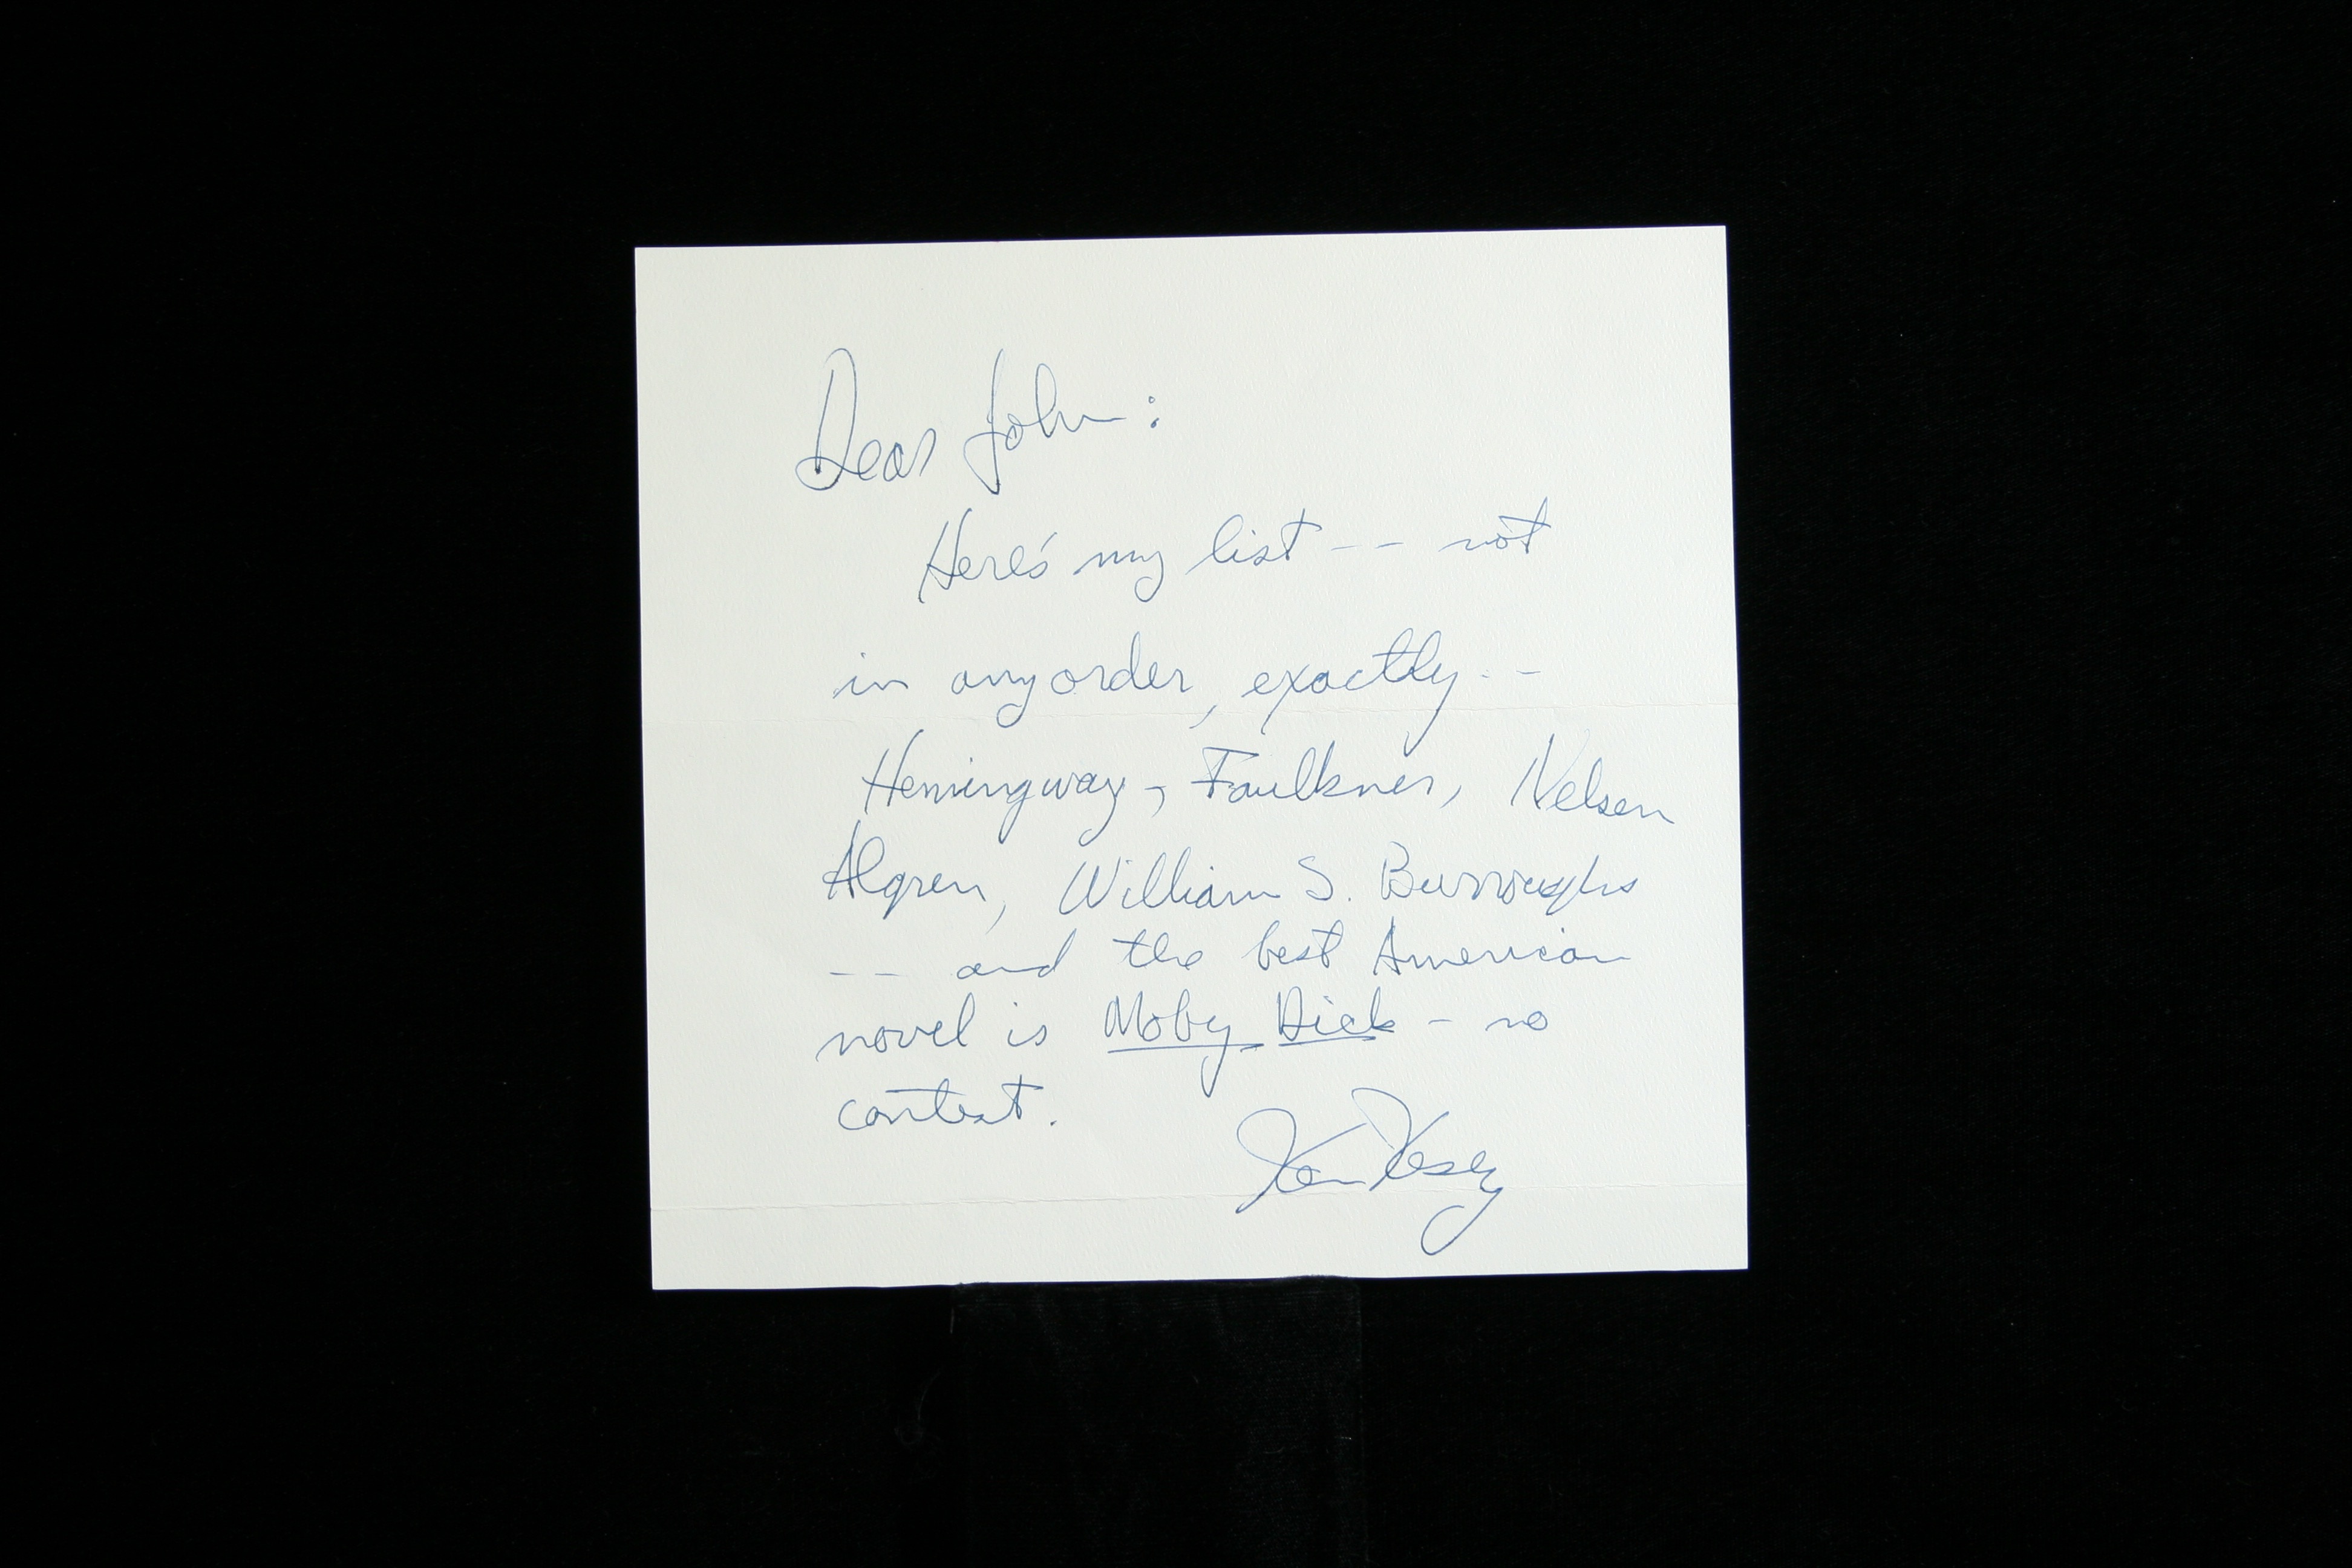 Dear John:
Here's my list -- not
in any order, exactly --
Hemingway, Faulkner, Nelsen
Algren, William S. Burroughs
-- and the best American
novel is Moby Dick - no
contest.
Ken Kesey